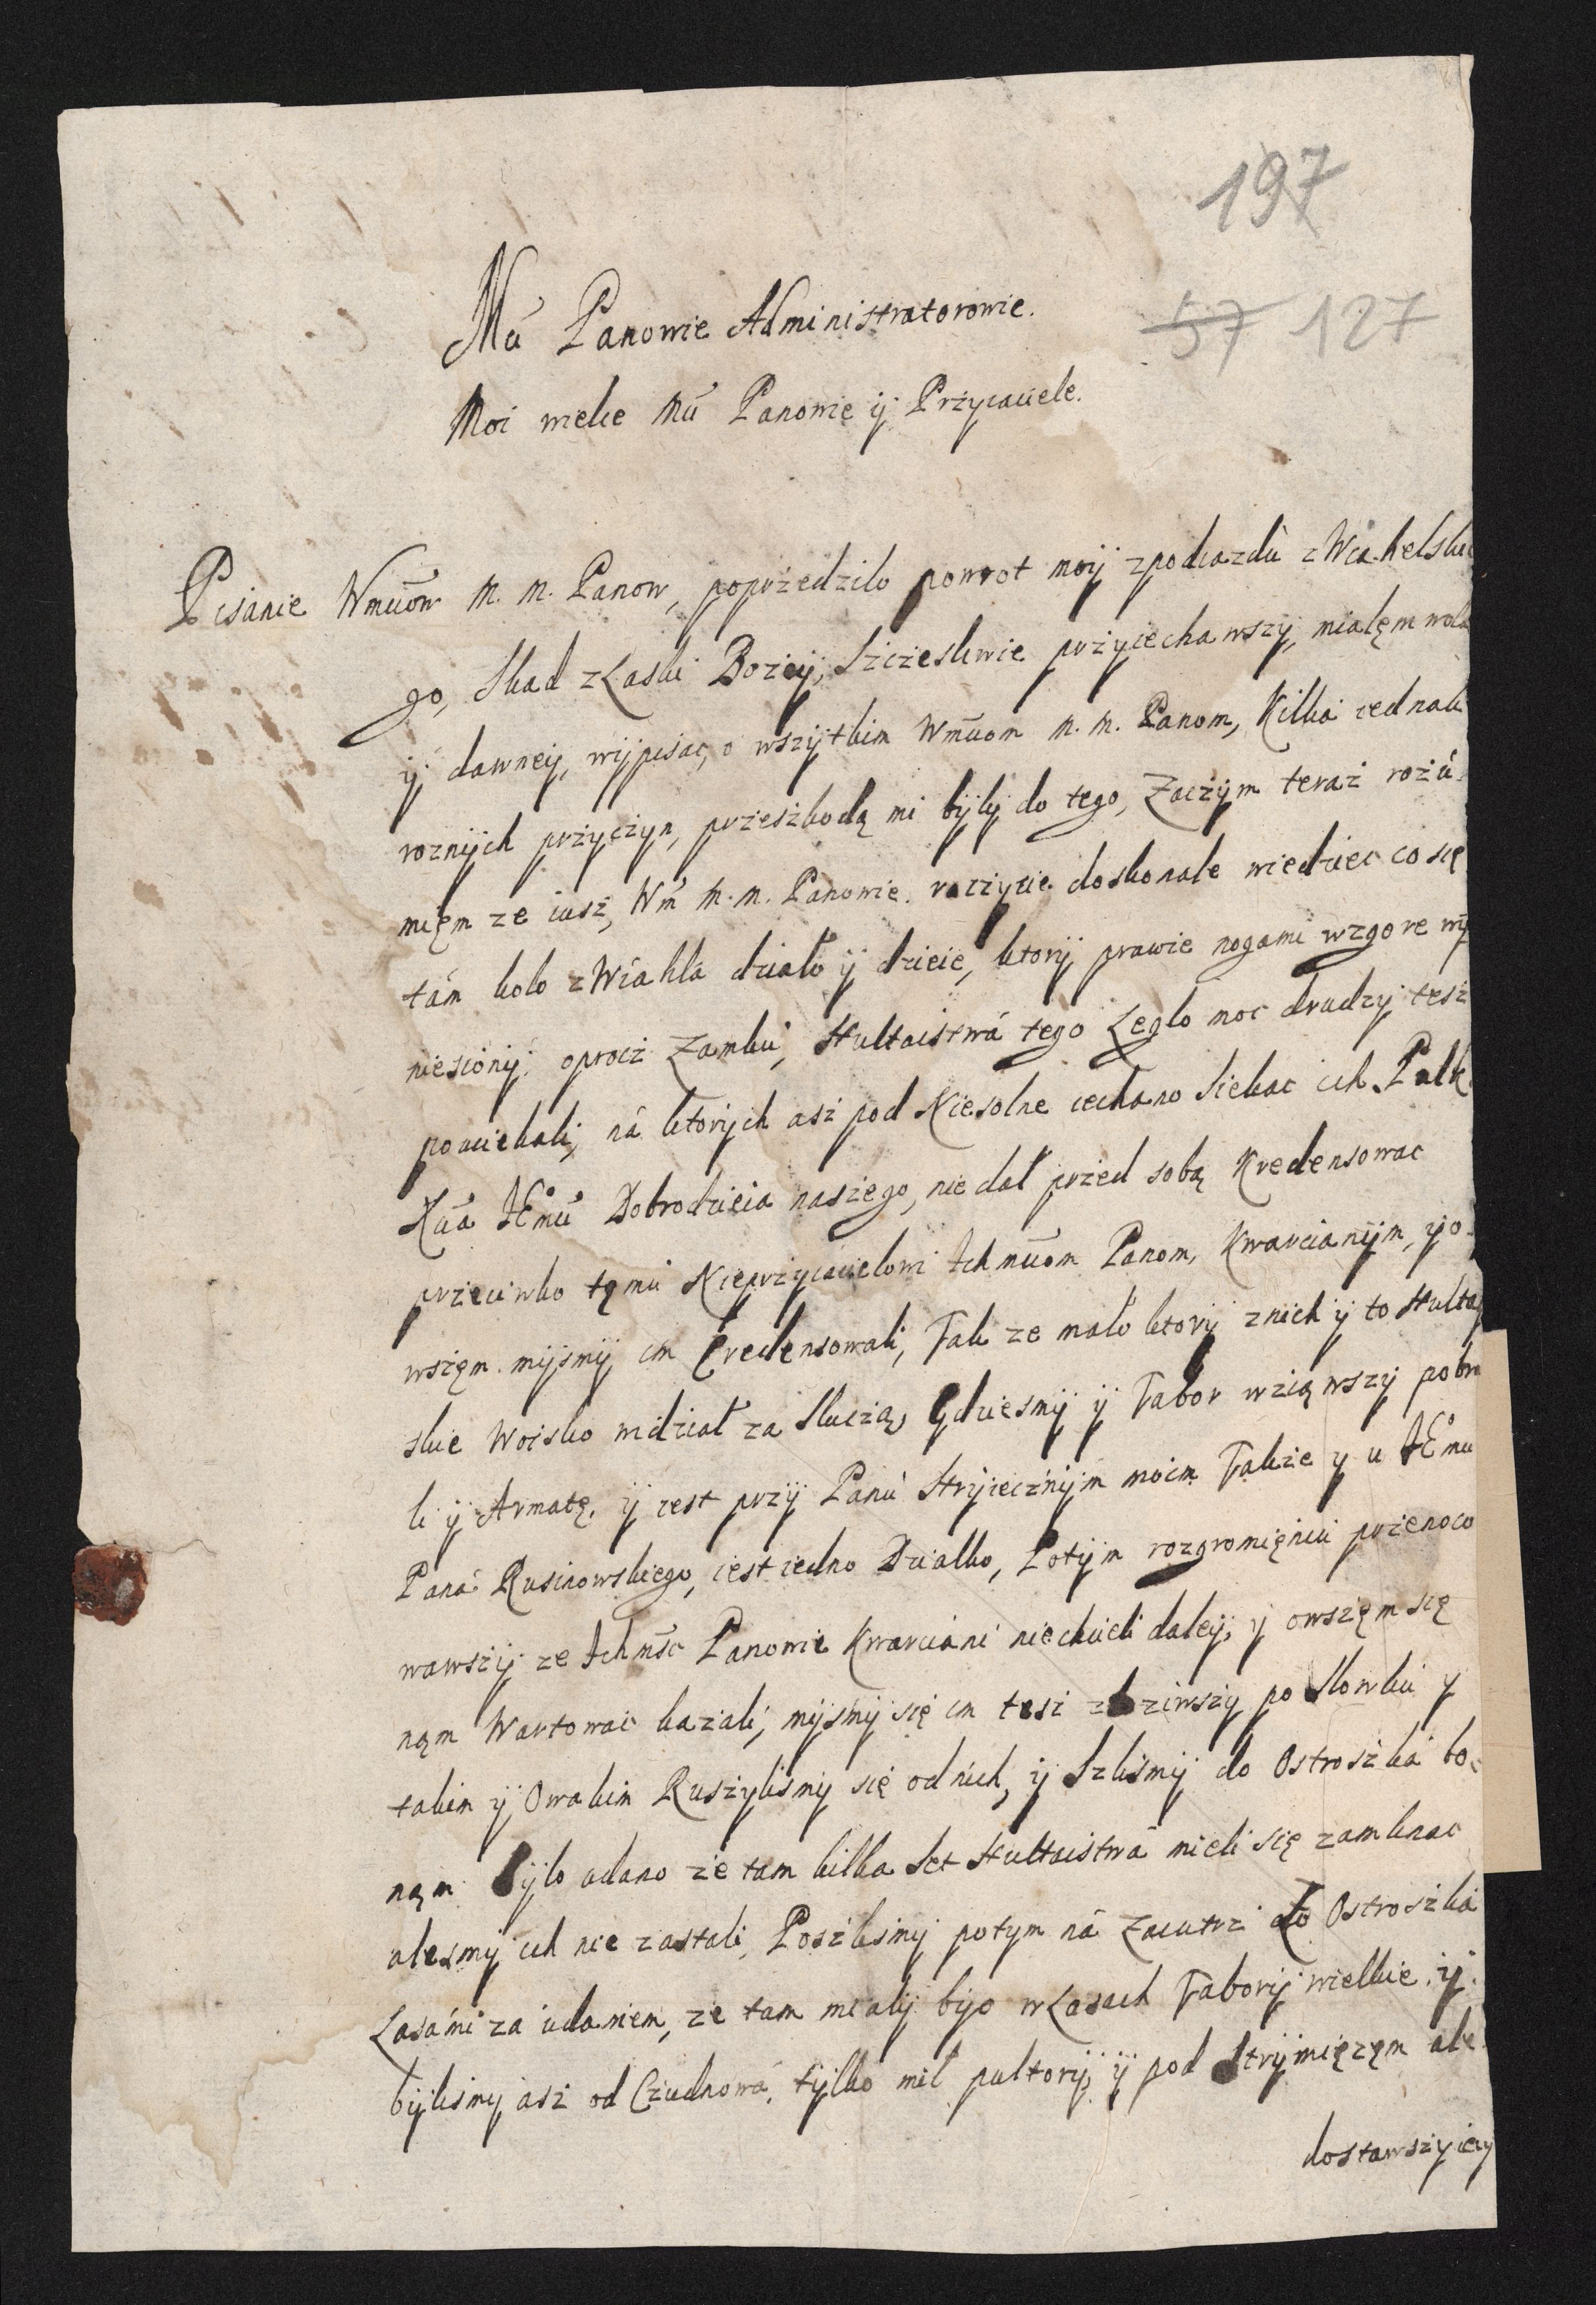 197
57 127
Mći Panowie Administratorowie.
Moi wielce Mći Panowie ÿ Przyiaciele.
Pisanie Wmciow M. M. Panow, poprzedziło powrot moÿ zpodiazdu zWiahelskie
go, Skad zŁaski Bozeÿ, Szczesliwie przyiechawszÿ, miałęm wolą
ÿ dawneÿ, wÿpisac, o wszÿtkim Wmciom M. M. Panom, Kilka iednak
roznÿch przÿczyn, przeszkodą mi bÿlÿ do tego, Zaczÿm teraz rozu
mięm ze iusz, Wm M. M. Panowie. raczÿcie doskonale wiedziec co się
tám koło zWiahlá działo ÿ dzieie, ktorÿ prawie nogami wzgore wÿ
niesionÿ; oprocz Zamku, Hultaistwá tego Legło moc drudzÿ tesz
pouciekali, ná ktorÿch asz pod Niesolne iechano Siekac ich. Pułk
Xcia JEmci Dobrodzieia naszego, nie dał przed sobą Kredensowac
przeciwko tęmu Nieprzyiacielowi Ichmciom Panom, Kwarcianÿm, ÿo
wszęm mÿsmÿ im Credensowali, Tak ze mało ktorÿ znich ÿ to Hultaÿ
skie Woisko widział za Słuczą, Gdziesmÿ ÿ Tabor wziąwszÿ pobra
li ÿ Armatę. ÿ iest przÿ Panu Strÿiecznÿm moim Takze y u JEmci
Paná Rusinowskiego, iest iedno Działko, Potÿm rozgromięniu przenoco
wawszÿ ze Ichmśc Panowie Kwarciani niechcieli daleÿ, ÿ owszęm się
nąm Wartowac kazali, mÿsmÿ się im tesz po Słowku y
takim ÿ Owakim Ruszÿlismÿ się odnich, ÿ Szlismÿ do Ostroszka bo
nąm Bÿlo udano ze tam kilka Set Hultaistwá mieli się zamknac
alesmÿ ich nie zastali, Poszlismÿ potym ná Zaiutrz do Ostroszka
Lasámi zá udaniem, ze tam miałÿ bÿc wLasach Taborÿ wielkie ÿ
bÿlismÿ asz od Czudnowá, tÿlko mil pultorÿ, ÿ pod Strÿmięzęm ale
dostawszÿ ięzÿ